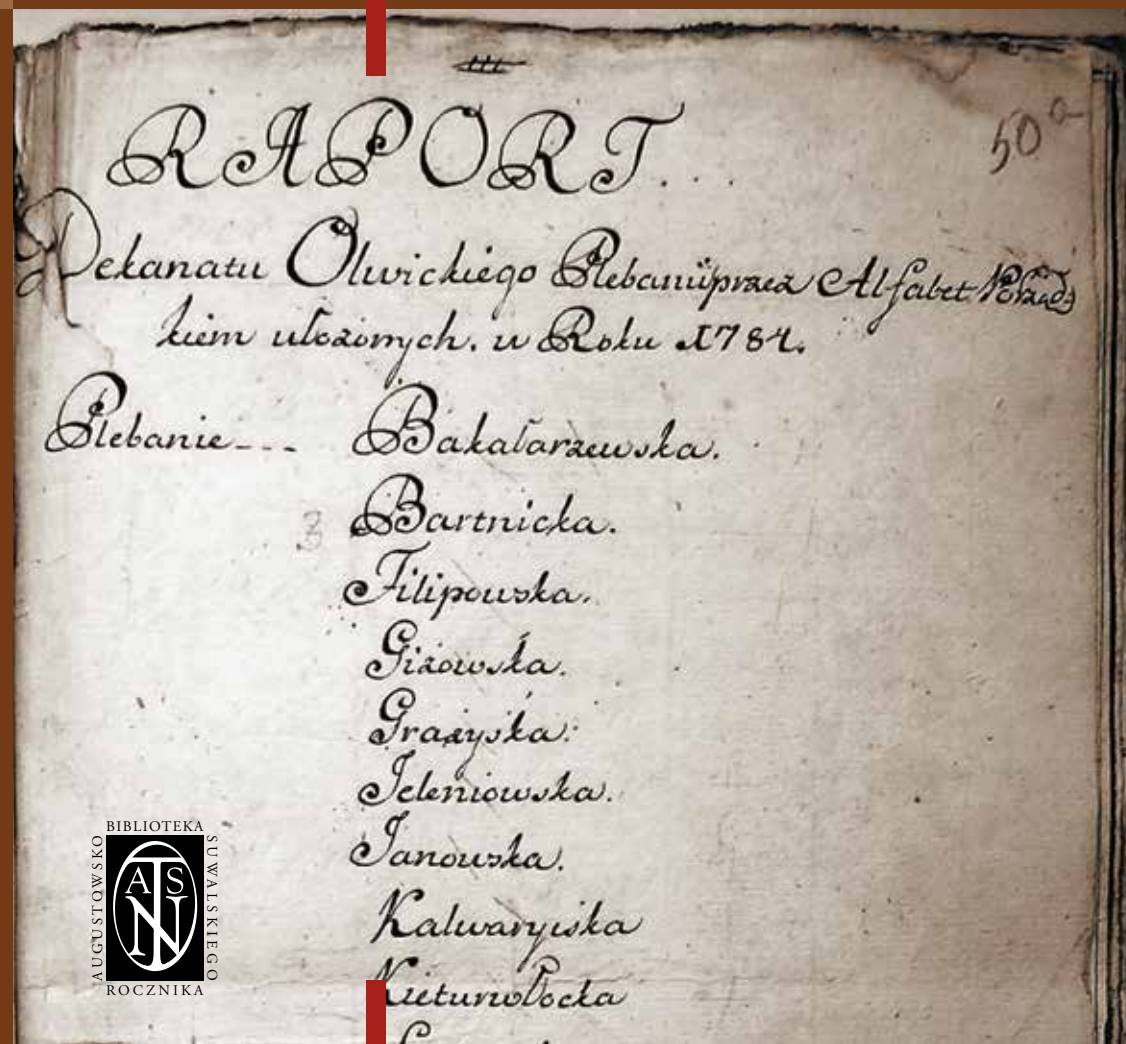 50a
RAPORT...
Dekanatu Olwickiego Plebanii przez Alfabet Porząd
kiem ułożonych. w Roku 1784.
Plebanie--- Bakałarzewska.
3 Bartnicka.
Filipowska.
Giżowska.
Grażyska.
Jeleniowska.
Janowska.
Kalwaryiska
Kieturwłocka
BIBLIOTEKA
AUGUSTOWSKO
SUWALSKIEGO
ATSN
ROCZNIKA